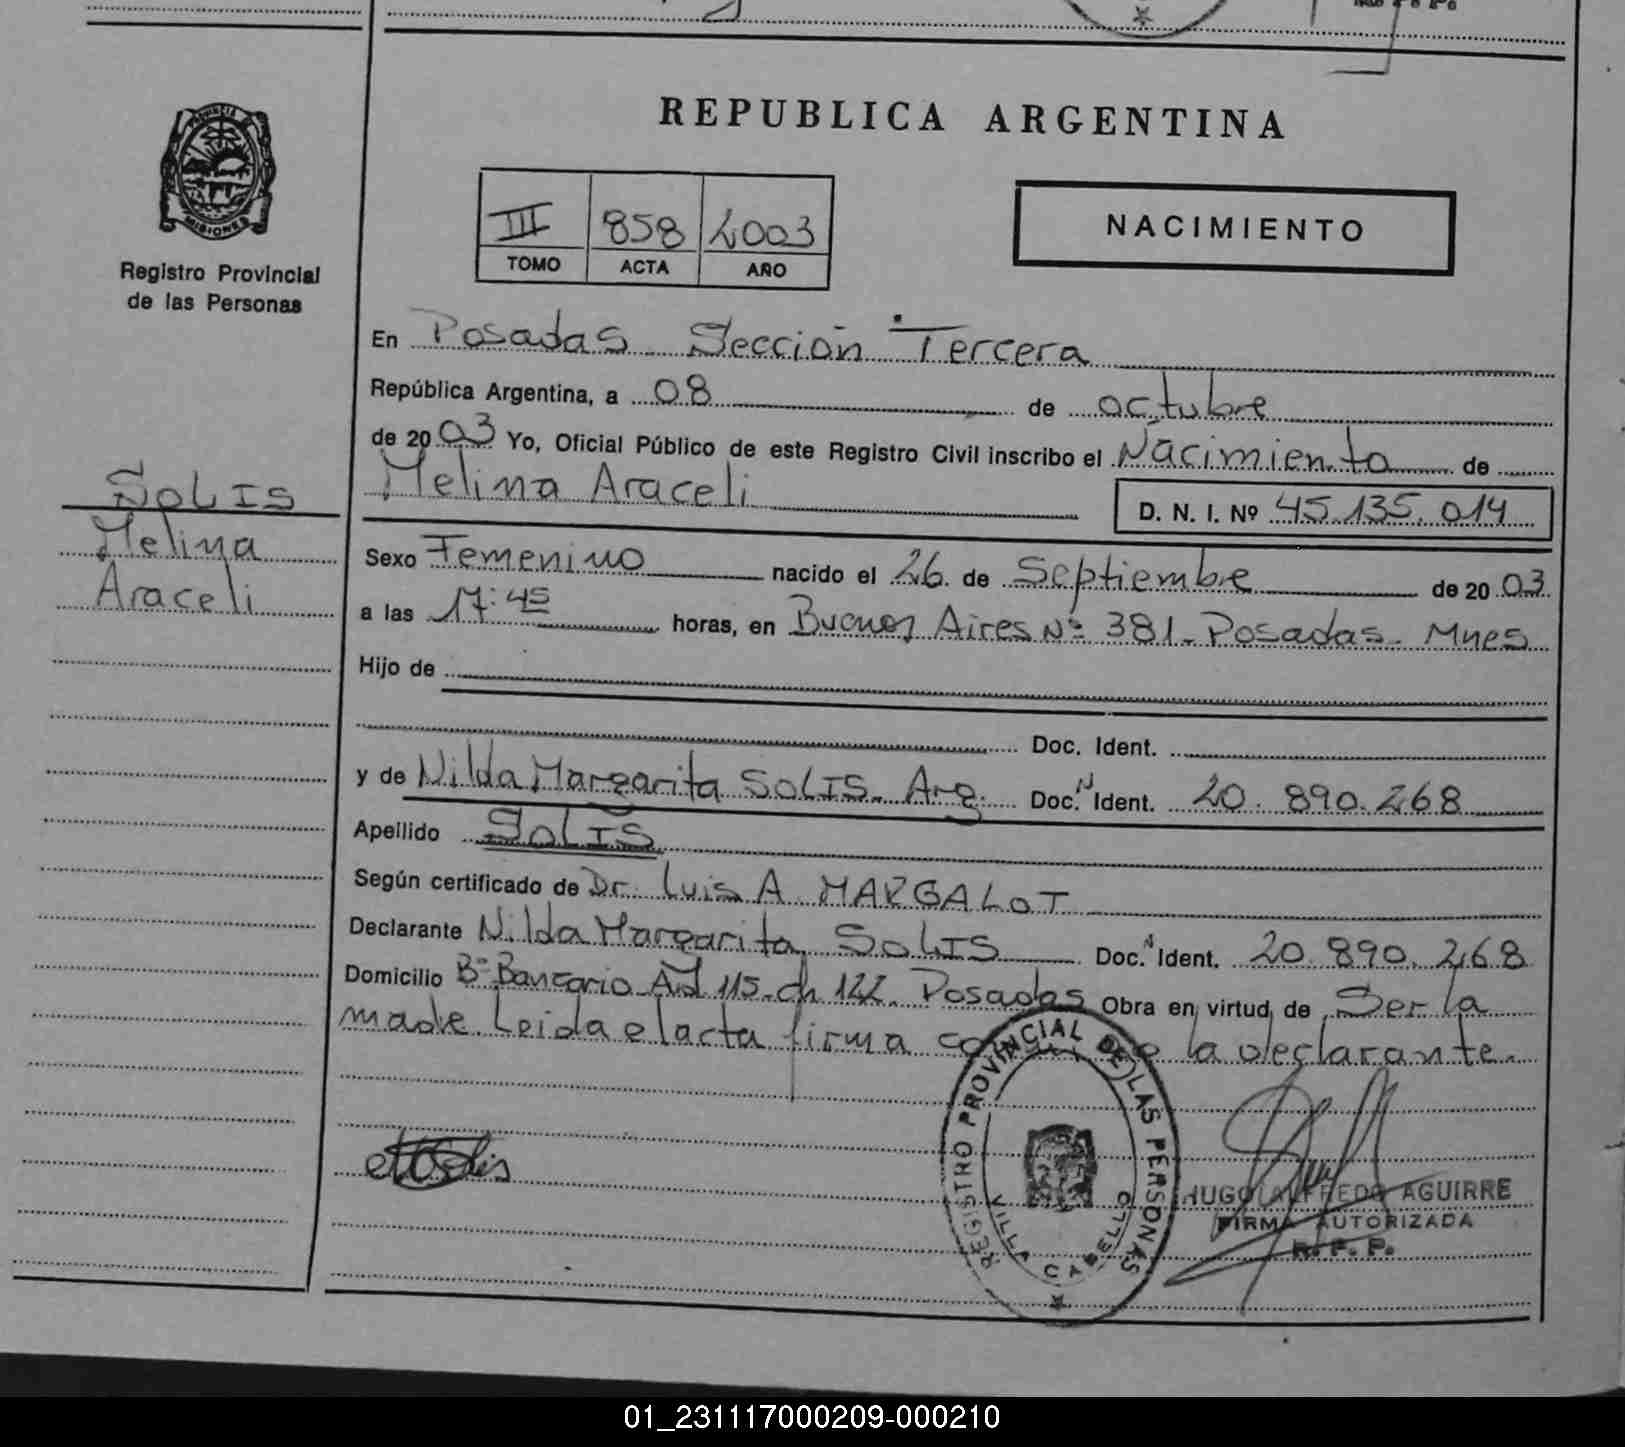 PROVINCIA
MISIONES
Registro Provincial
de las Personas
REPUBLICA ARGENTINA
III 858 2003
TOMO ACTA AÑO
NACIMIENTO
En Posadas Sección Tercera
República Argentina, a 08 de octubre
de 2003 Yo, Oficial Público de este Registro Civil inscribo el Nacimiento de
Melina Araceli
D. N. I. Nº 45.135.014
SOLIS
Melina
Araceli
Sexo Femenino nacido el 26 de Septiembre de 2003
a las 17:45 horas, en Buenos Aires Nº 381. Posadas. Mnes
Hijo de
Doc. Ident.
y de Nilda Margarita SOLIS. Arg. Doc. N Ident. 20.890.268
Apellido SOLIS
Según certificado de Dr. Luis A MARGALOT
Declarante Nilda Margarita SOLIS Doc. N Ident. 20.890.268
Domicilio Bº Bancario 115. ch 122. Posadas Obra en virtud de Ser la
made. Leida el acta firma la declarante.
REGISTRO PROVINCIAL DE LAS PERSONAS
VILLA CABELLO
HUGO ALFREDO AGUIRRE
FIRMA AUTORIZADA
R. P. P.
01_231117000209-000210